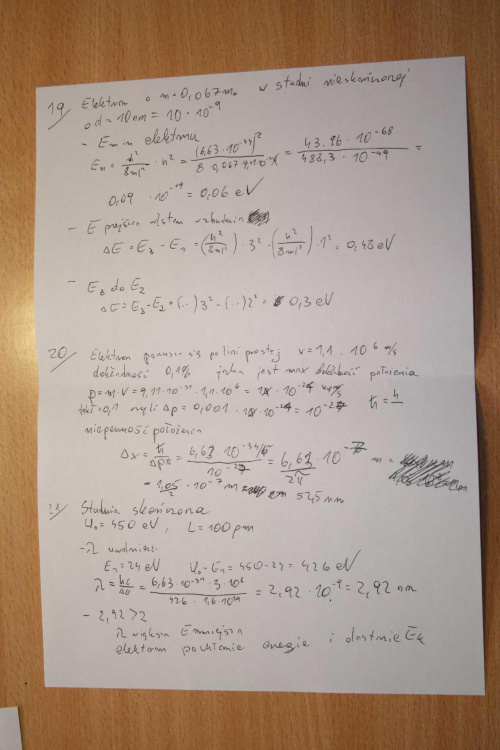 19/ Elektron o m=0,067m₀ w studni nieskończonej
o d=10nm = 10·10⁻⁹
- E min elektronu
Eₙ = h²/8ml² · n² = (6,63·10⁻³⁴)²/8·0,067·9,1·10⁻³¹ = 43.96·10⁻⁶⁸/488,3·10⁻⁴⁹ =
0,09·10⁻¹⁹ = 0,06 eV
- E przejścia wzbudzenia
ΔE = E₃ - E₁ = (h²/8ml²)·3² - (h²/8ml²)·1² = 0,48 eV
- E₃ do E₂
ΔE = E₃-E₂ = (..)3² - (..)2² = 0,3 eV
20/ Elektron porusza się po linii prostej v=1,1·10⁶ m/s
dokładność 0,1% jaka jest max dokładność położenia
p=m·V = 9,11·10⁻³¹·1,1·10⁶ = 10·10⁻²⁴
0,1 czyli Δp = 0,001·10·10⁻²⁴ = 10⁻²⁷ ħ = h/
niepewność położenia
Δx = ħ/Δp2 = 6,63·10⁻³⁴/10⁻²⁷ = 6,63·10⁻⁷/2π m =
= 1,05/2·10⁻⁷ m 52,5 nm
Studnia skończona
U₀ = 450 eV, L=100pm
-λ uwolnienie
E₁=24eV U₀-E₁ = 450-24 = 426 eV
λ = hc/ΔE = 6,63·10⁻³⁴·3·10⁸/426·1,6·10⁻¹⁹ = 2,92·10⁻⁹ = 2,92 nm
- 2,92>2
λ większa E mniejsza
elektron pochłonie energię i dostanie Eₖ